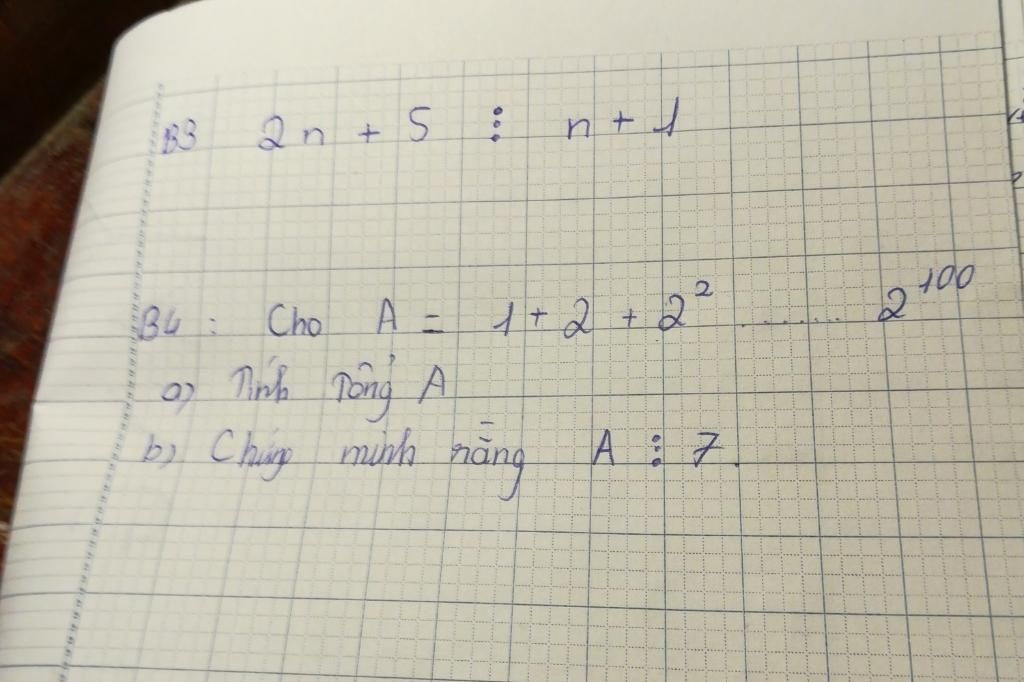 B3 2n + 5 ⋮ n + 1
B4 : Cho A = 1 + 2 + 2² ........ 2¹⁰⁰
a) Tính Tổng A
b) Chứng minh rằng A ⋮ 7.